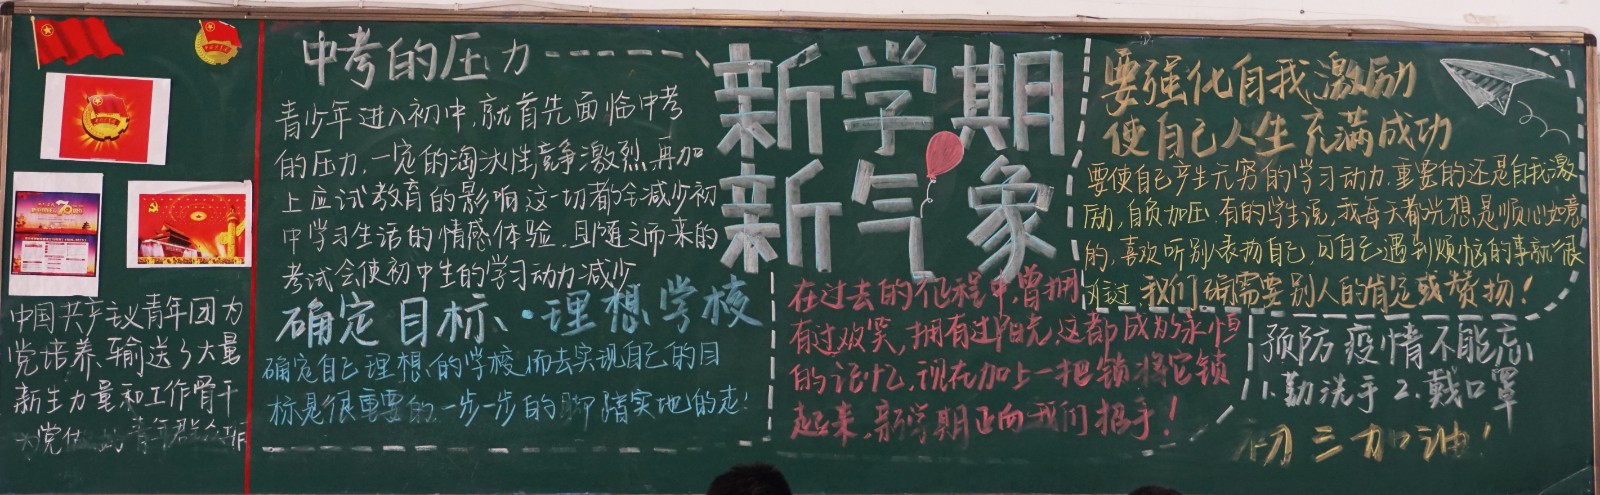 中国共产主义青年团为
党培养、输送了大量
新生力量和工作骨干
中考的压力
青少年进入初中,就首先面临中考
的压力,一定的淘汰性竞争激烈,再加
上应试教育的影响,这一切都会减少初
中学习生活的情感体验,且随之而来的
考试会使初中生的学习动力减少
确定目标、·理想学校
确定自己理想的学校,而去实现自己的目
标是很重要的,一步一步的脚踏实地的走!
新学期
新气象
在过去的征程中,曾拥
有过欢笑,拥有过阳光,这都成为永恒
的记忆,现在加上一把锁将它锁
起来,新学期正向我们招手!
要强化自我激励
使自己人生充满成功
要使自己产生无穷的学习动力,重要的还是自我激
励,自负加压,有的学生说,我每天都光想是顺心如意
的,喜欢听别表扬自己,可自己遇到烦恼的事就很
难过 我们确需要别人的肯定或赞扬!
预防疫情不能忘
1.勤洗手 2.戴口罩
初三加油!